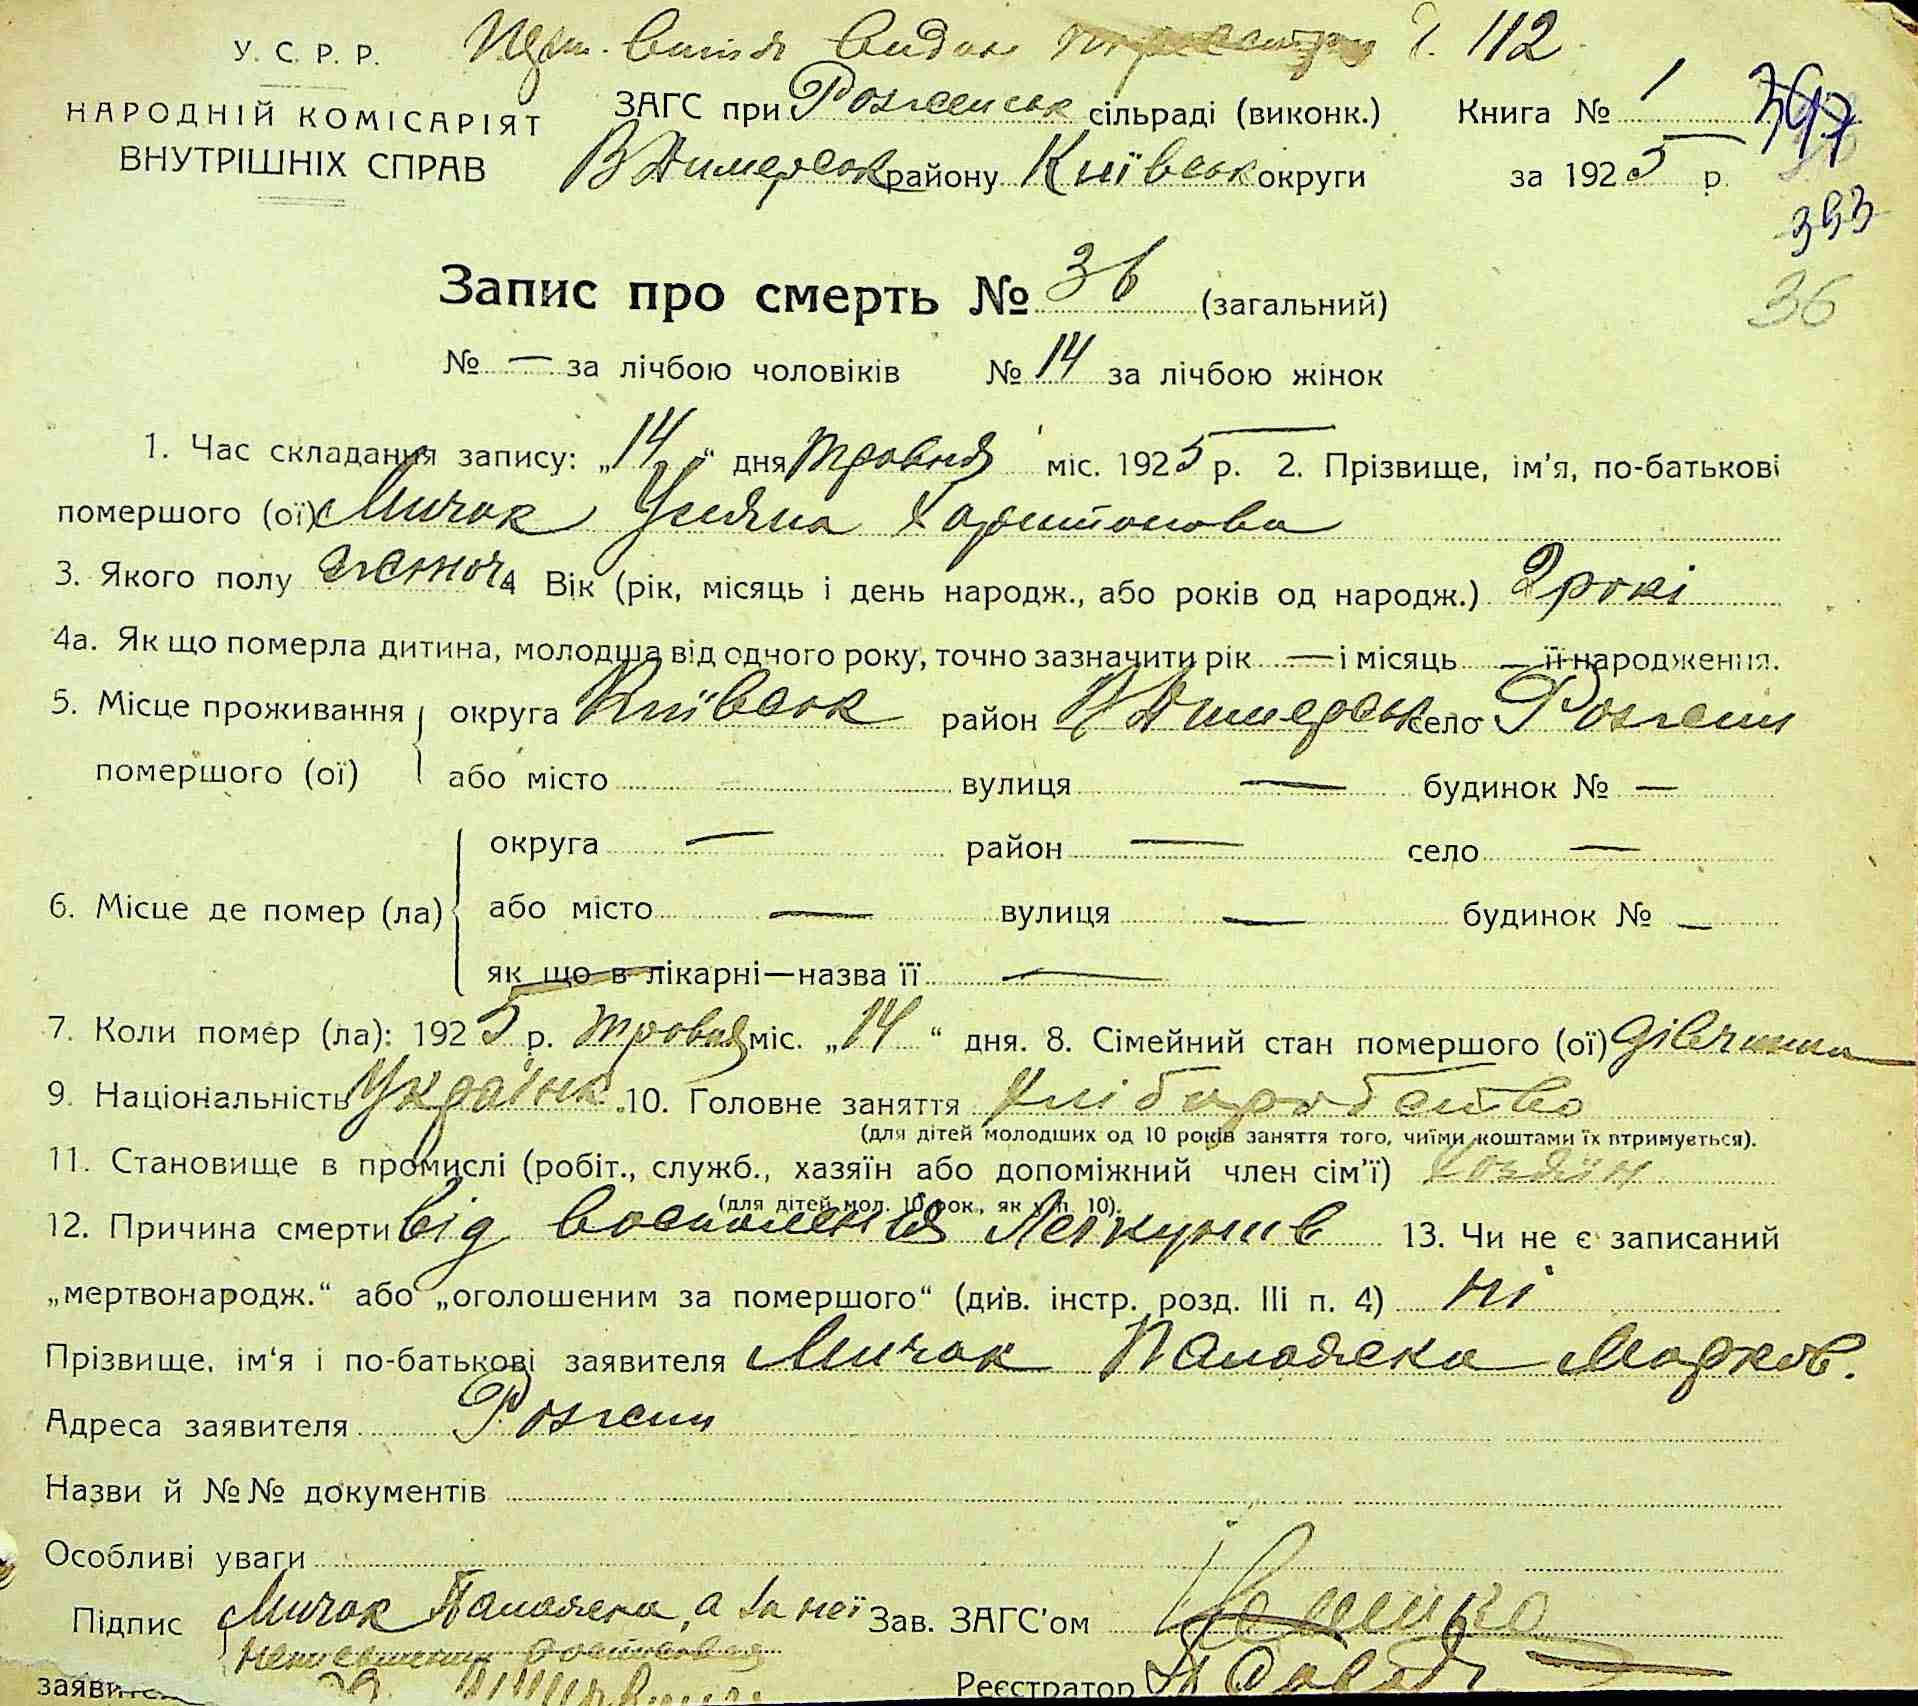 У. С. Р. Р.
Ч. 112
НАРОДНІЙ КОМІСАРІЯТ
ВНУТРІШНІХ СПРАВ
ЗАГС при Роженськ сільраді (виконк.) Книга № 1 397
В Димерськ району Київськ округи за 1925 р.
393
Запис про смерть № 36 (загальний)
36
№ — за лічбою чоловіків № 14 за лічбою жінок
1. Час складання запису: „14“ дня травня міс. 1925 р. 2. Прізвище, ім’я, по-батькові
помершого (ої) Мичак Уляна Харитонова
3. Якого полу жіноч. 4 Вік (рік, місяць і день народж., або років од народж.) 2 рокі
4а. Як що померла дитина, молодша від одного року, точно зазначити рік — і місяць — її народження.
5. Місце проживання помершого (ої) округа Київськ район В Димерськ село Рожни
або місто вулиця — будинок № —
6. Місце де помер (ла) округа — район — село —
або місто — вулиця — будинок № —
як що в лікарні—назва її —
7. Коли помер (ла): 1925 р. травня міс. „14“ дня. 8. Сімейний стан помершого (ої) дівчина
9. Національність Українка. 10. Головне заняття хліборобство
(для дітей молодших од 10 років заняття того, чиїми коштами їх втримується).
11. Становище в промислі (робіт., служб., хазяїн або допоміжний член сім’ї) хозяїн
(для дітей мол. 10 рок., як у п. 10).
12. Причина смерти від воспаления Легкунив 13. Чи не є записаний
„мертвонародж.“ або „оголошеним за помершого“ (див. інстр. розд. III п. 4) ні
Прізвище, ім‘я і по-батькові заявителя Мичак Палажка Марков.
Адреса заявителя Рожни
Назви й №№ документів
Особливі уваги
Підпис Мичак Палажка, а за неї Зав. ЗАГС’ом
заявите
Реєстратор